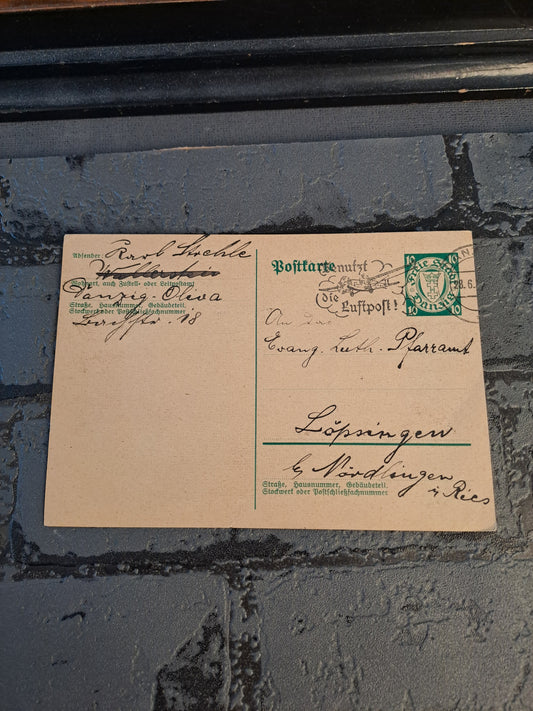 Absender: Karl Stehle
Wohnort, auch Zustell- oder Leitpostamt
Danzig-Oliva
Straße, Hausnummer, Gebäudeteil,
Stockwerk oder Postschließfachnummer
18
Postkarte
Benutzt
die
Luftpost!
10 10
Freie Stadt
Danzig
10 10
28.6.
An das
Evang. Luth. Pfarramt
Löpsingen
b/ Nördlingen
i/ Ries
Straße, Hausnummer, Gebäudeteil,
Stockwerk oder Postschließfachnummer